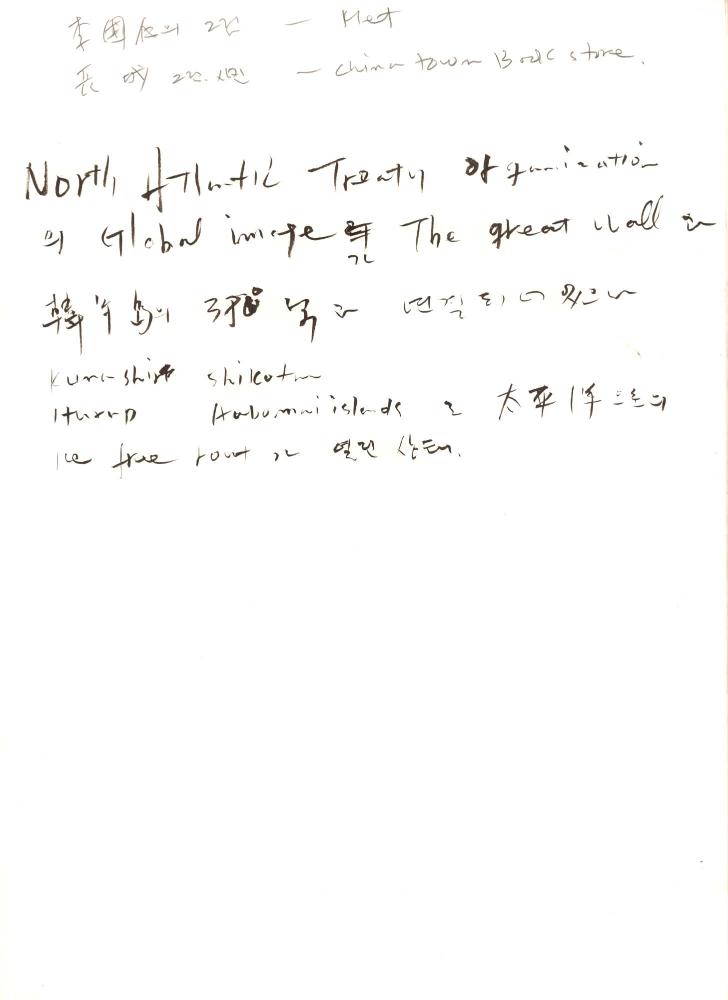 李國 의 — Met
長城 — China town Book store.
North Atlantic Treaty Organization
의 Global image가 The great Wall 과
韓半島의 38° 과 연결되어 있으나
Kunashir Shikotan
Iturup Habomai islands 로 太平洋으로의
ice free rout가 열린 상태.